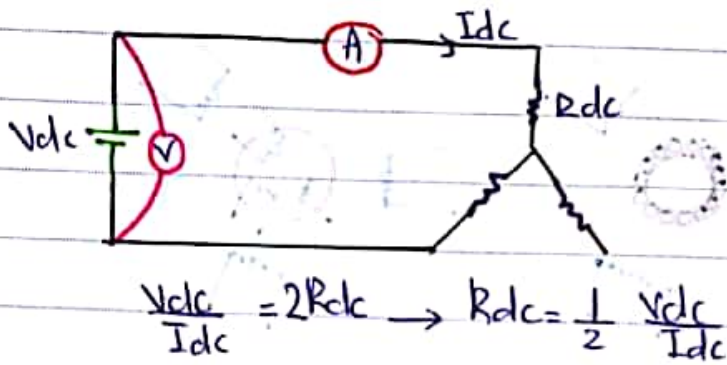 A Idc
Rdc
Vdc V
Vdc/Idc = 2Rdc → Rdc = 1/2 Vdc/Idc